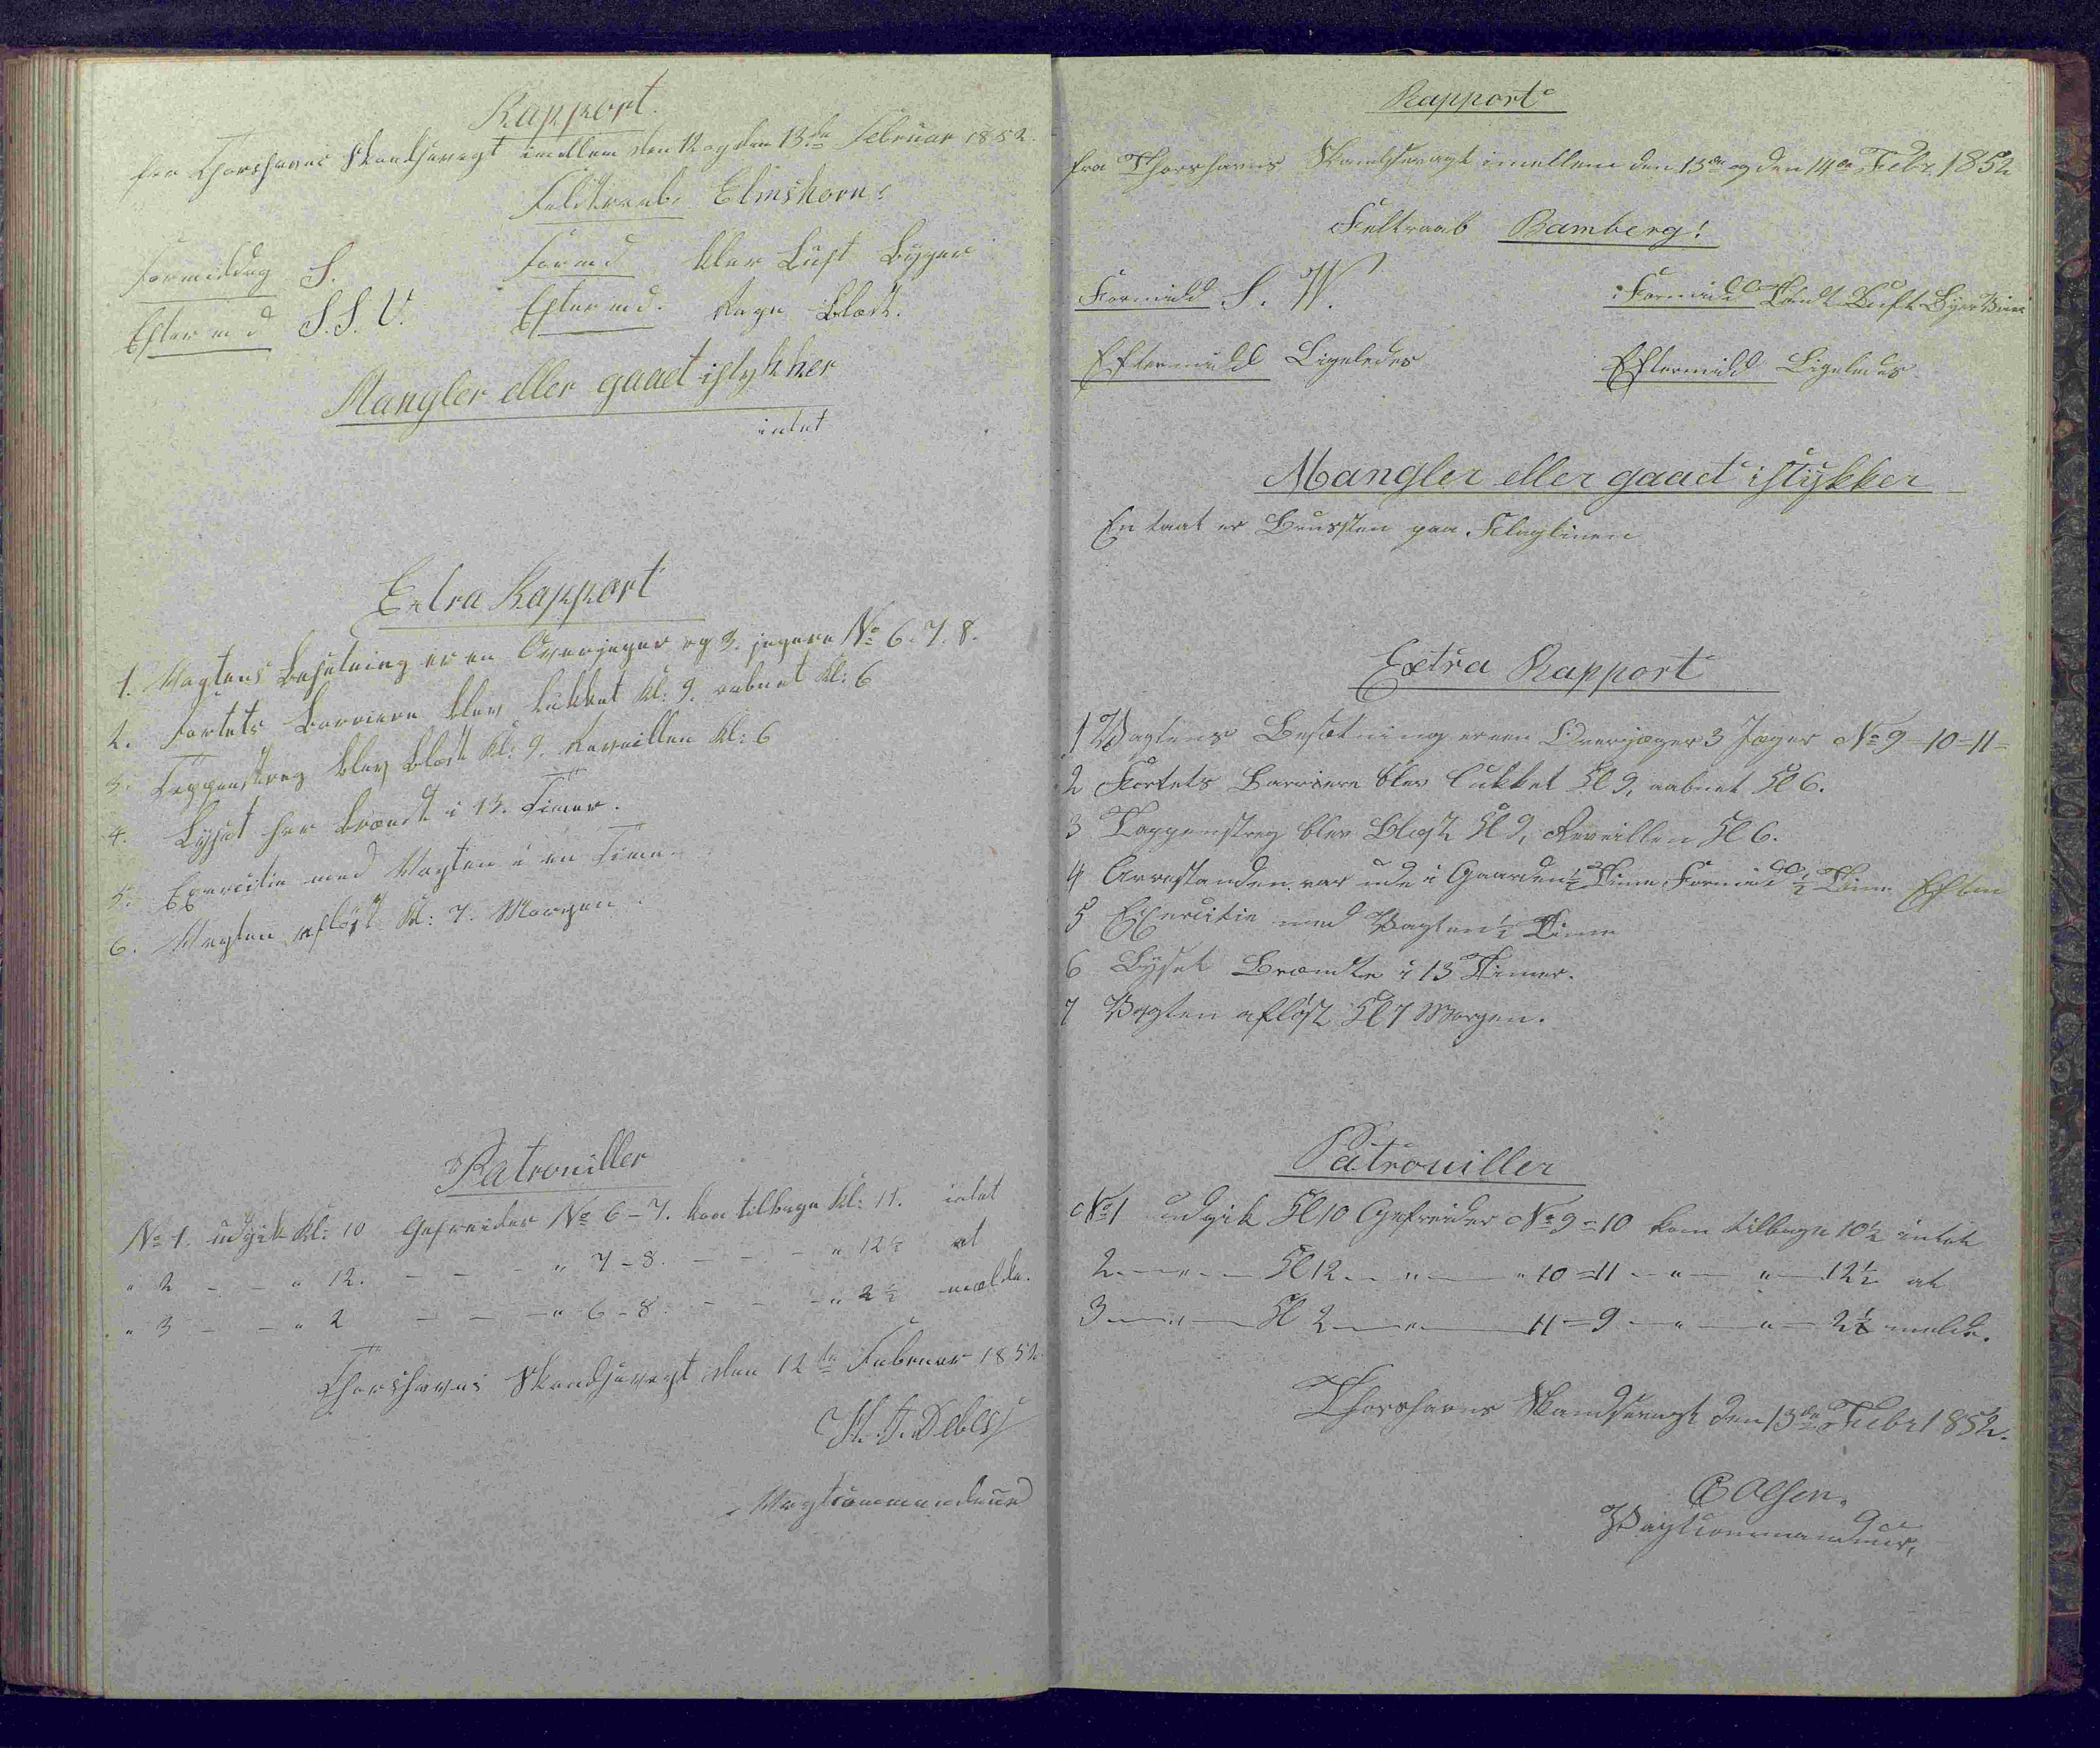 Rapport.
fra Thorshavns Skandsevagt imellem den 12 og den 13de Februar 1852.
Feldtraab. Elmshorn!
Formiddag S. Formd klar Luft Byger
Eftermd S.S.V. Eftermd. Regn Blæst.
Mangler eller gaaet istykker
intet
Extra Rapport
1. Vagtens Besetning er en Overjæger og 3. jegere No 6.7.8.
2. Fortets Barriere blev lukket Kl: 9. aabnet Kl: 6
3. Tappenstreg blev blæst Kl: 9. Reveillen Kl: 6
4. Lyset har brændt i 13. Timer.
5. Exercitie med Vagten i en Time.
6. Vagten afløst Kl: 7. Morgen.
Patrouiller
No 1. udgik Kl: 10 Gefreider No 6-7. kom tilbage Kl: 11. intet
" 2 - - " 12. - - - " 7-8. - - - " 12½ at
" 3 - - " 2 - - - " 6-8. - - - " 2½ melde.
Thorshavns Skandsevagt den 12te Februar 1852.
H. J. Debes
Vagtcommandeur
Rapport
fra Thorshavns Skandsevagt imellem den 13de og den 14de Febr 1852
Feltraab Bamberg!
Formidd S. W. Formidd Luft
Eftermidd Ligeledes Eftermidd Ligeledes
Mangler eller gaaet istykker
En taat er Brusten paa Flaglinen
Extra Rapport
1 Vagtens Besetning er een Overjæger 3 Jæger No 9-10-11-
2 Fortets Barriere blev lukket Kl 9, aabnet Kl 6.
3 Tappenstreg blev Blæst Kl 9, Reveillen Kl 6.
4 Arrestanden var ude i Gaarden ½ Time Formidd ½ Time Efterm
5 Exercitie med Vagten ½ Time
6 Lyset Brændte i 13 Timer.
7 Vagten afløst Kl 7 Morgen.
Patrouiller
No 1 udgik Kl 10 Gefreider No 9-10 kom tilbage 10½ intet
2 - " - Kl 12 - " - " 10-11 - " - " - 12½ at
3 - " - Kl 2 - " - 11-9 - " - " - 2½ melde.
Thorshavns Skandsevagt den 13de Febr 1852.
Olsen.
Vagtcommandeur.